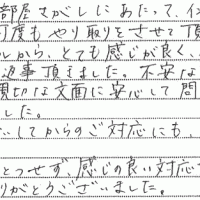 部屋さがしにあたって、イ
何度もやり取りをさせて頂
ルから、とても感じが良く、
返事頂きました。不安な
親切な文面に安心して問
した。
してからのご対応にも、
とつせず、感じの良い対応
りがとうございました。